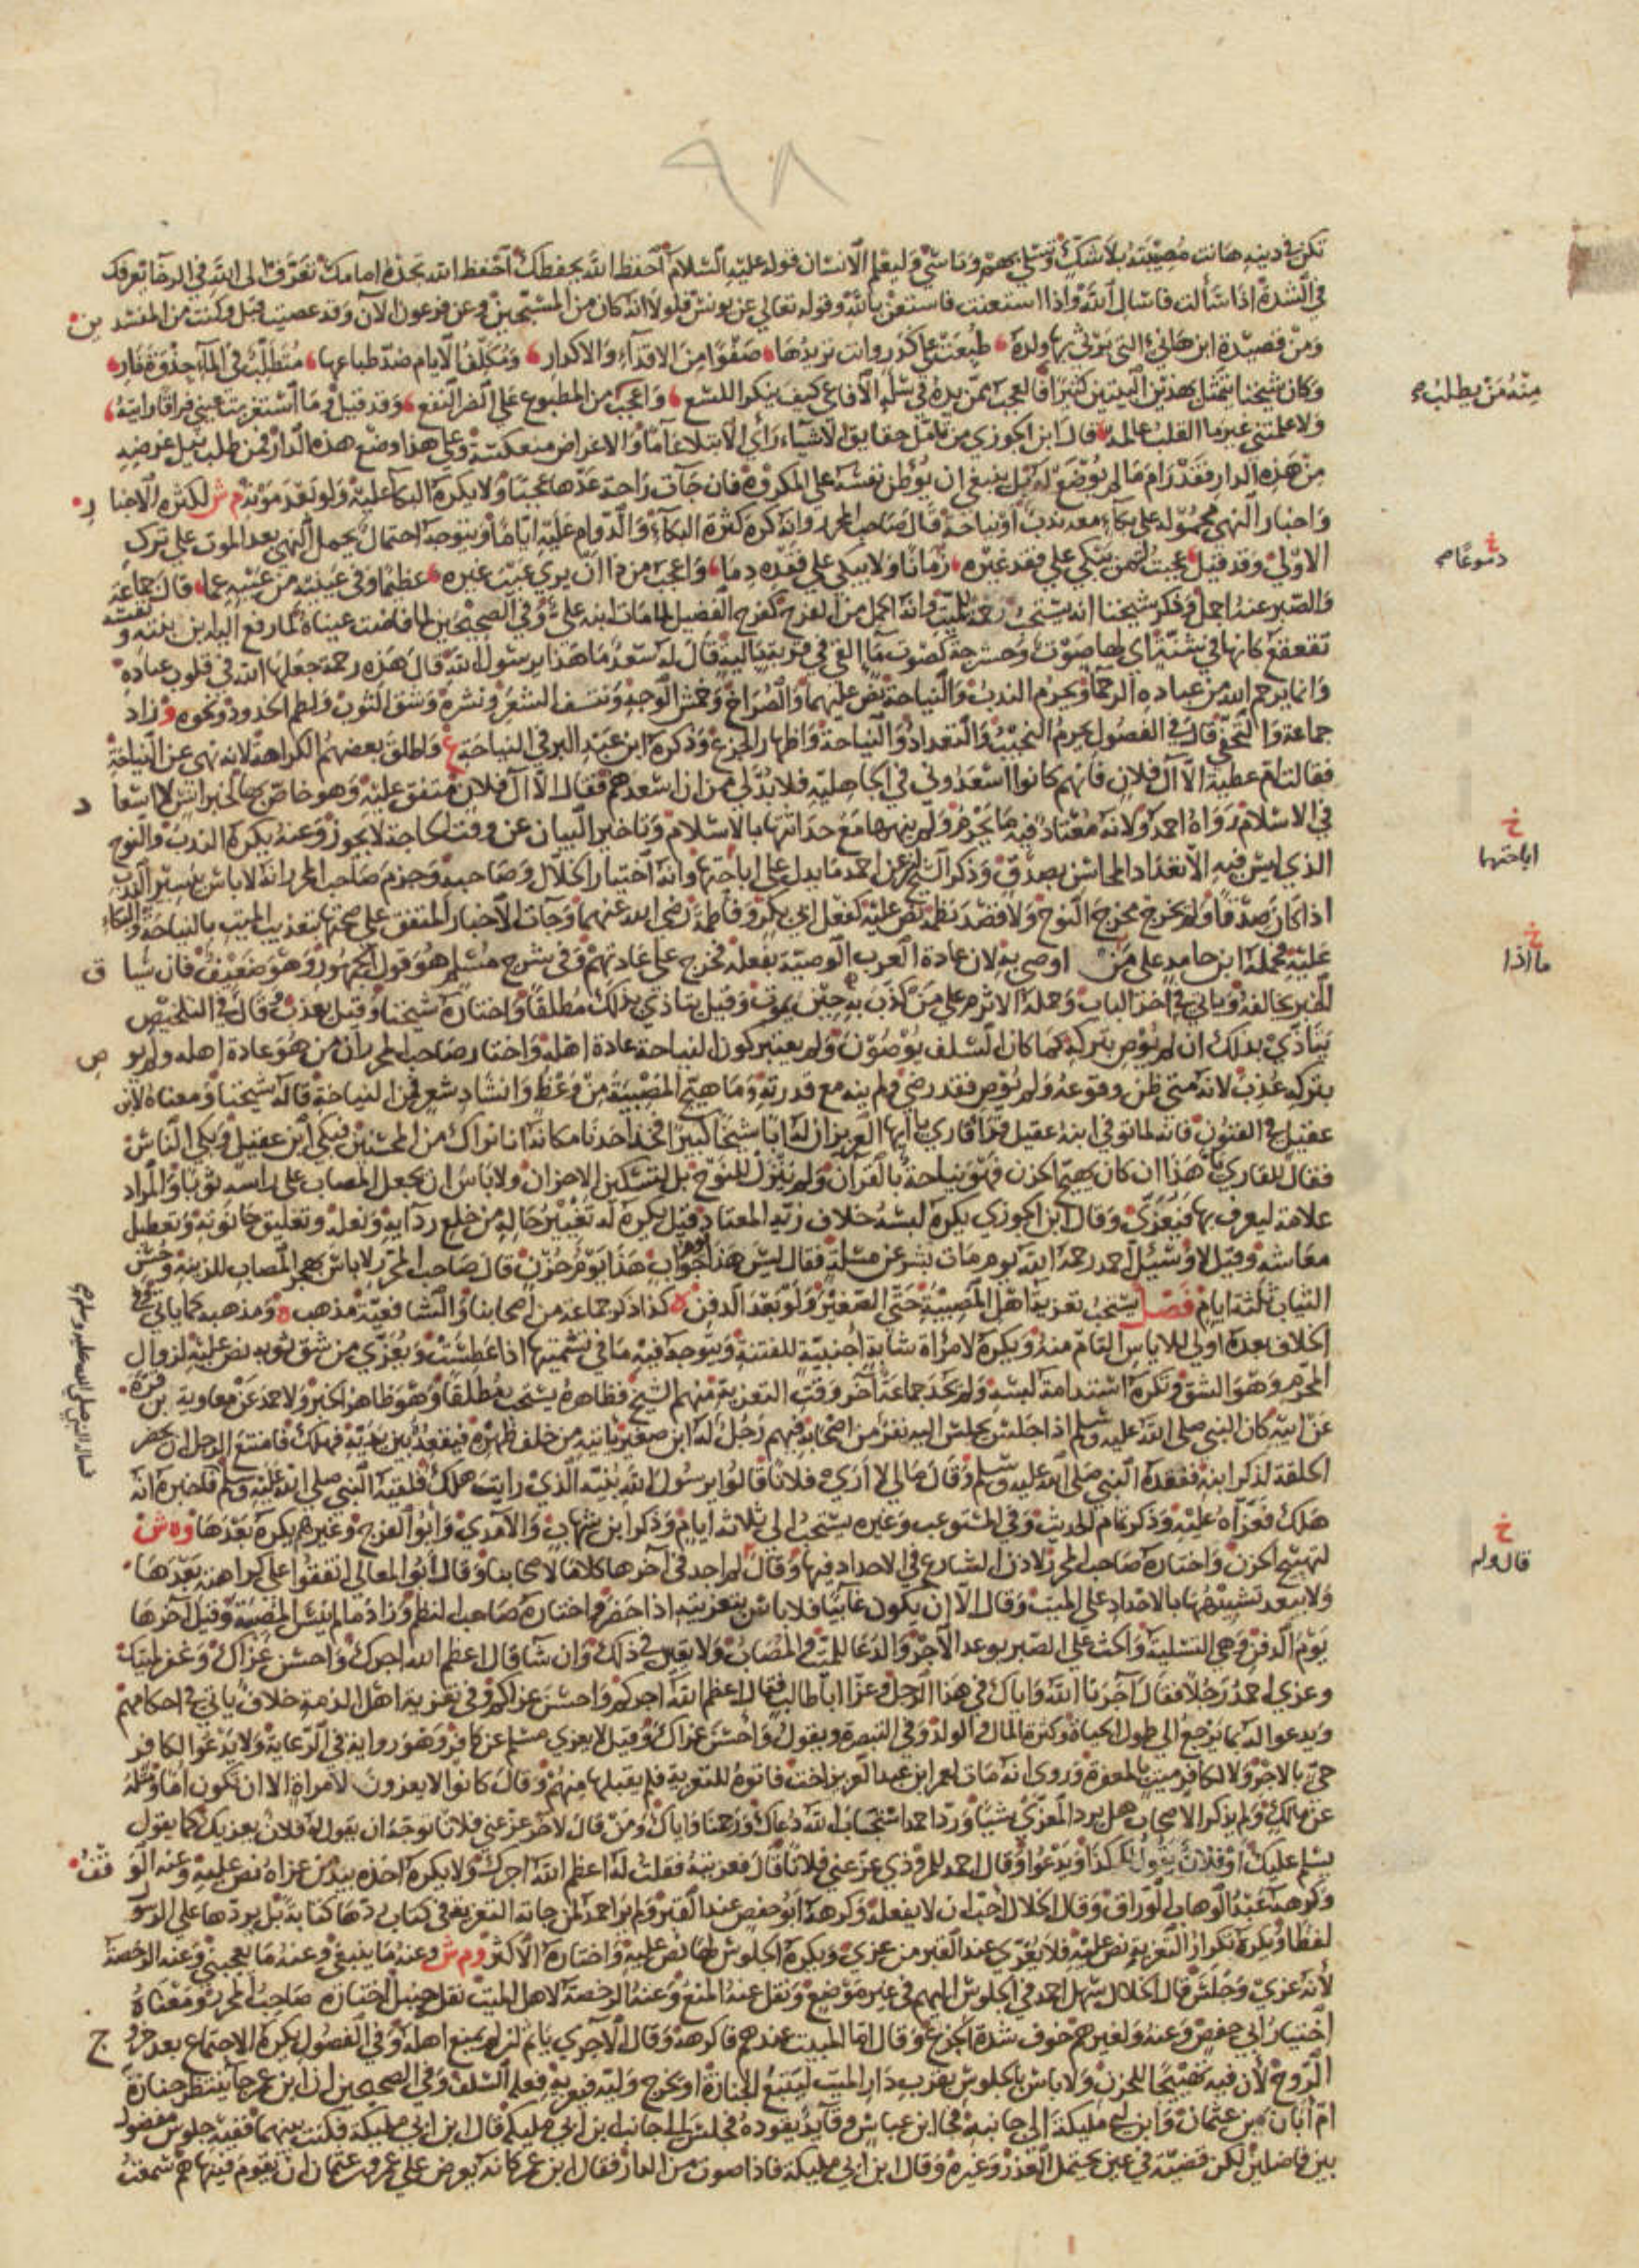 ٩٨
تكن في دينه هانت مصيبته بلا شك وتسلى بهم وتأسى وليعلم الانسان قوله عليه السلام احفظ الله يحفظك احفظ الله تجده امامك تعرف الى الله في الرخا يعرفك
في الشدة اذا سألت فاسال الله واذا استعنت فاستعن بالله وقوله تعالى عن يونس فلولا انه كان من المسبحين وعن فرعون الآن وقد عصيت قبل وكنت من المفسدين
ومن قصيدة ابن هانئ التي يرثي بها ولده طبعت على كدر وانت تريدها صفوا من الاقذاء والاكدار ومكلف الايام ضد طباعها متطلب في الماء جذوة نار
وكان شيخنا يتمثل بهذين البيتين كثيرا فالعجب ممن يده في سلة الافاعي كيف ينكر اللسع واعجب من المطبوع على الضر النفع وقد قيل وما استغربت عيني فراقا رايته
ولا علمتني غير ما القلب عالمه قال ابن الجوزي من تأمل حقايق الاشياء رأى الابتلاء عاما والاغراض منعكسة وعلى هذا وضع هذه الدار فمن طلب نيل غرضه
من هذه الدار فقد رام ما لم يوضع له بل ينبغي ان يوطن نفسه على المكروه فان جآت راحة عدها عجبا ولا يكره البكا عليه ولو بعد موته م ش لكثرة الاخبار
واخبار النهي محمولة على بكاء معه ندب او نياحة قال صاحب المحرر وانه كره كثرة البكاء والدوام عليه اياما ويتوجه احتمال يحمل النهي بعد الموت على ترك
الاولى وقد قيل عجبت لمن يبكي على فقد غيره زمانا ولا يبكي على فقده دما واعجب من ذا ان يرى عيب غيره عظيما وفي عينيه من عيبه عما قال جماعة
والصبر عنه اجمل وذكر شيخنا انه يستحب رحمة للميت وانه اكمل من الفرح كفرح الفضيل لما مات ابنه علي وفي الصحيحين لما فاضت عيناه لما رفع اليه ابن ابنته ونفسه
تقعقع كانها في شنة اي لها صوت وحشرجة كصوت ما القي في قربة بالية قال له سعد ما هذا يرسول الله قال هذه رحمة جعلها الله في قلوب عباده
وانما يرحم الله من عباده الرحما ويحرم الندب والنياحة نص عليهما والصراخ وخمش الوجه ونتف الشعر ونشره وشق الثوب ولطم الخدود ونحوه و زاد
جماعة والتحفي قال في الفصول يحرم النحيب والتعداد والنياحة واظهار الجزع وذكره ابن عبد البر في النياحة ع واطلق بعضهم الكراهة لانه نهى عن النياحة
فقالت ام عطية الا آل فلان فانهم كانوا اسعدوني في الجاهلية فلا بد لي من ان اسعدهم فقال الا آل فلان متفق عليه وهو خاص بها لخبر انس لا اسعاد
في الاسلام رواه احمد ولانه معتاد فيه ما يحرم ولم ينهها مع حداثتها بالاسلام وتاخير البيان عن وقت الحاجة لا يجوز وعنه يكره الندب والنوح
الذي ليس فيه الا تعداد المحاسن بصدق وذكر الشيخ عن احمد ما يدل على اباحتها وانه اختيار الخلال وصاحبه وجزم صاحب المحرر انه لا باس بيسير الندب
اذا كان صدقا ولم يخرج مخرج النوح ولا قصد نظمه نص عليه كفعل ابي بكر وفاطمة رضي الله عنهما وجآت الاخبار المتفق على صحتها بتعذيب الميت بالنياحة والبكاء
عليه فحمله ابن حامد على من اوصى به لان عادة العرب الوصية بفعله فخرج على عادتهم وفي شرح مسلم هو قول الجمهور وهو ضعيف فان سياق
الخبر يخالفه وياتي في آخر الباب وحمله الاثرم على من كذب به حين يموت وقيل يتاذى بذلك مطلقا واختاره شيخنا وقيل يعذب وقال في التلخيص
يتاذى بذلك ان لم يوص بتركه كما كان السلف يوصون ولم يعتبر كون النياحة عادة اهله واختار صاحب المحرر ان من هو عادة اهله ولم يوص
بتركه عذب لانه متى ظن وقوعه ولم يوص فقد رضي ولم ينه مع قدرته وما هيج المصيبة من وعظ وانشاد شعر فمن النياحة قاله شيخنا ومعناه لابن
عقيل في الفنون فانه لما توفي ابنه عقيل قرأ قاري يا ايها العزيز ان له ابا شيخا كبيرا فخذ احدنا مكانه انا نراك من المحسنين فبكى ابن عقيل وبكى الناس
فقال للقاري يا هذا ان كان يهيج الحزن فهو نياحة بالقرآن ولم ينزل للنوح بل لتسكين الاحزان ولا باس ان يجعل المصاب على راسه ثوبا والمراد
علامة ليعرف بها فيعزى وقال ابن الجوزي يكره لبسه خلاف زيه المعتاد وقيل يكره له تغيير حاله من خلع ردايه ونعله وتغليق حانوته وتعطيل
معاشه وقيل لا وسئل احمد رحمه الله يوم مات بشر عن مسئلة فقال ليس هذا يوم جواب هذا يوم حزن قال صاحب المحرر لا باس بهجر المصاب للزينة وحسن
الثياب ثلثة ايام فصل يستحب تعزية اهل المصيبة حتى الصغير ولو بعد الدفن ه كذا ذكر جماعة من اصحابنا والشافعية مذهب ه ومذهبه كما ياتي
الخلاف بعده اولى للاياس التام منه ويكره لامراة شابة اجنبية للفتنة ويتوجه فيه ما في تشميتها اذا عطست ويعزى من شق ثوبه نص عليه لزوال
المحرم وهو الشق وتكره استدامة لبسه ولم يحد جماعة آخر وقت التعزية منهم الشيخ فظاهره يستحب مطلقا وهو ظاهر الخبر ولاحمد عن معاوية بن قرة
عن ابيه كان النبي صلى الله عليه وسلم اذا جلس يجلس اليه نفر من اصحابه فيهم رجل له ابن صغير ياتيه من خلف ظهره فيقعده بين يديه فهلك فامتنع الرجل ان يحضر
الحلقة لذكر ابنه ففقده النبي صلى الله عليه وسلم وقال ما لي لا ارى فلانا قالوا يرسول الله بنيه الذي رايته هلك فلقيه النبي صلى الله عليه وسلم فاخبره انه
هلك فعزاه عليه وذكر تمام الحديث وفي المستوعب وغيره يستحب الى ثلاثة ايام وذكر ابن شهاب والآمدي وابو الفرج وغيرهم يكره بعدها و ه ش
لتهييج الحزن واختاره صاحب المحرر لاذن الشارع في الاحداد فيها وقال لم اجد في آخرها كلاما لاصحابنا وقال ابو المعالي اتفقوا على كراهته بعدها
ولا يبعد تشبيهها بالاحداد على الميت وقال الا ان يكون غايبا فلا باس بتعزيته اذا حضر واختاره صاحب النظم وزاد ما لم ينس المصيبة وقيل آخرها
يوم الدفن وهي التسلية والحث على الصبر بوعد الاجر والدعا للميت والمصاب ولا يعين في ذلك وان شا قال اعظم الله اجرك واحسن عزاك وغفر لميتك
وعزى احمد رجلا فقال آجرنا الله واياك في هذا الرجل وعزا ابا طالب فقال اعظم الله اجركم واحسن عزاكم وفي تعزية اهل الذمة خلاف ياتي في احكامهم
ويدعو له بما يرجع الى طول الحياة وكثرة المال والولد وفي التبصرة ويقول واحسن عزاك وقيل لا يعزى مسلم عن كافر وهو رواية في الرعاية ولا يدعو الكافر
حي بالاجر ولا لكافر ميت بالمغفرة وروى انه مات لعمر ابن عبد العزيز اخت فاتوه للتعزية فلم يقبلها منهم وقال كانوا لا يعزون لامراة الا ان تكون اما ومثله
عن مالك ولم يذكر الاصحاب هل يرد المعزى شيئا ورد احمد استجاب الله دعاك ورحمنا واياك ومن قال لاخر عز عني فلانا توجه ان يقول له فلان يعزيك كما يقول
يسلم عليك او فلان يقول لك كذا ويدعو وقال احمد للمروذي عز عني فلانا قال فعزيته فقلت له اعظم الله اجرك ولا يكره اخذه بيد من عزاه نص عليه وعنه الوقف
وكرهه عبد الوهاب الوراق وقال الخلال احب ان لا يفعله وكرهه ابو حفص عند القبر ولم ير احمد لمن جاته التعزية في كتاب ردها كتابة بل يردها على الرسول
لفظا ويكره تكرار التعزية نص عليه فلا يعزى عند القبر من عزى ويكره الجلوس لها نص عليه واختاره الاكثر وم ش وعنه ما ينبغي وعنه ما يعجبني وعنه الرخصة
لأنه عزى وجلس قال الخلال سهل احمد في الجلوس اليهم في غير موضع ونقل عنه المنع وعنه الرخصة لاهل الميت نقل حنبل اختاره صاحب المحرر ومعناه
اختيار ابي حفص وعنه ولغيرهم خوف شدة الجزع وقال اما المبيت عندهم فاكرهه وقال الآجري ياثم ان لم يمنع اهله وفي الفصول يكره الاجتماع بعد خروج
الروح لأن فيه تهييجا للحزن ولا باس بالجلوس بقرب دار الميت ليتبع الجنازة او يخرج وليه فيعزيه فعله السلف وفي الصحيحين ان ابن عمر جا ينتظر جنازة
ام ابان بنت عثمان وابن ابي مليكة الى جانبه فجا ابن عباس وقايد يقوده فجلس الى جانب ابن ابي مليكة قال ابن ابي مليكة فكنت بينهما ففيه جلوس مفضول
بين فاضلين لكن قضية في عين يحتمل العذر وغيره وقال ابن ابي مليكة فاذا صوت من الدار فقال ابن عمر كانه يعرض على عمرو بن عثمان ان يقوم فينهاهم سمعت
منه من يطلب
خ
دموعا
خ
اباحتها
خ
ما اذا
خ
قال ولم